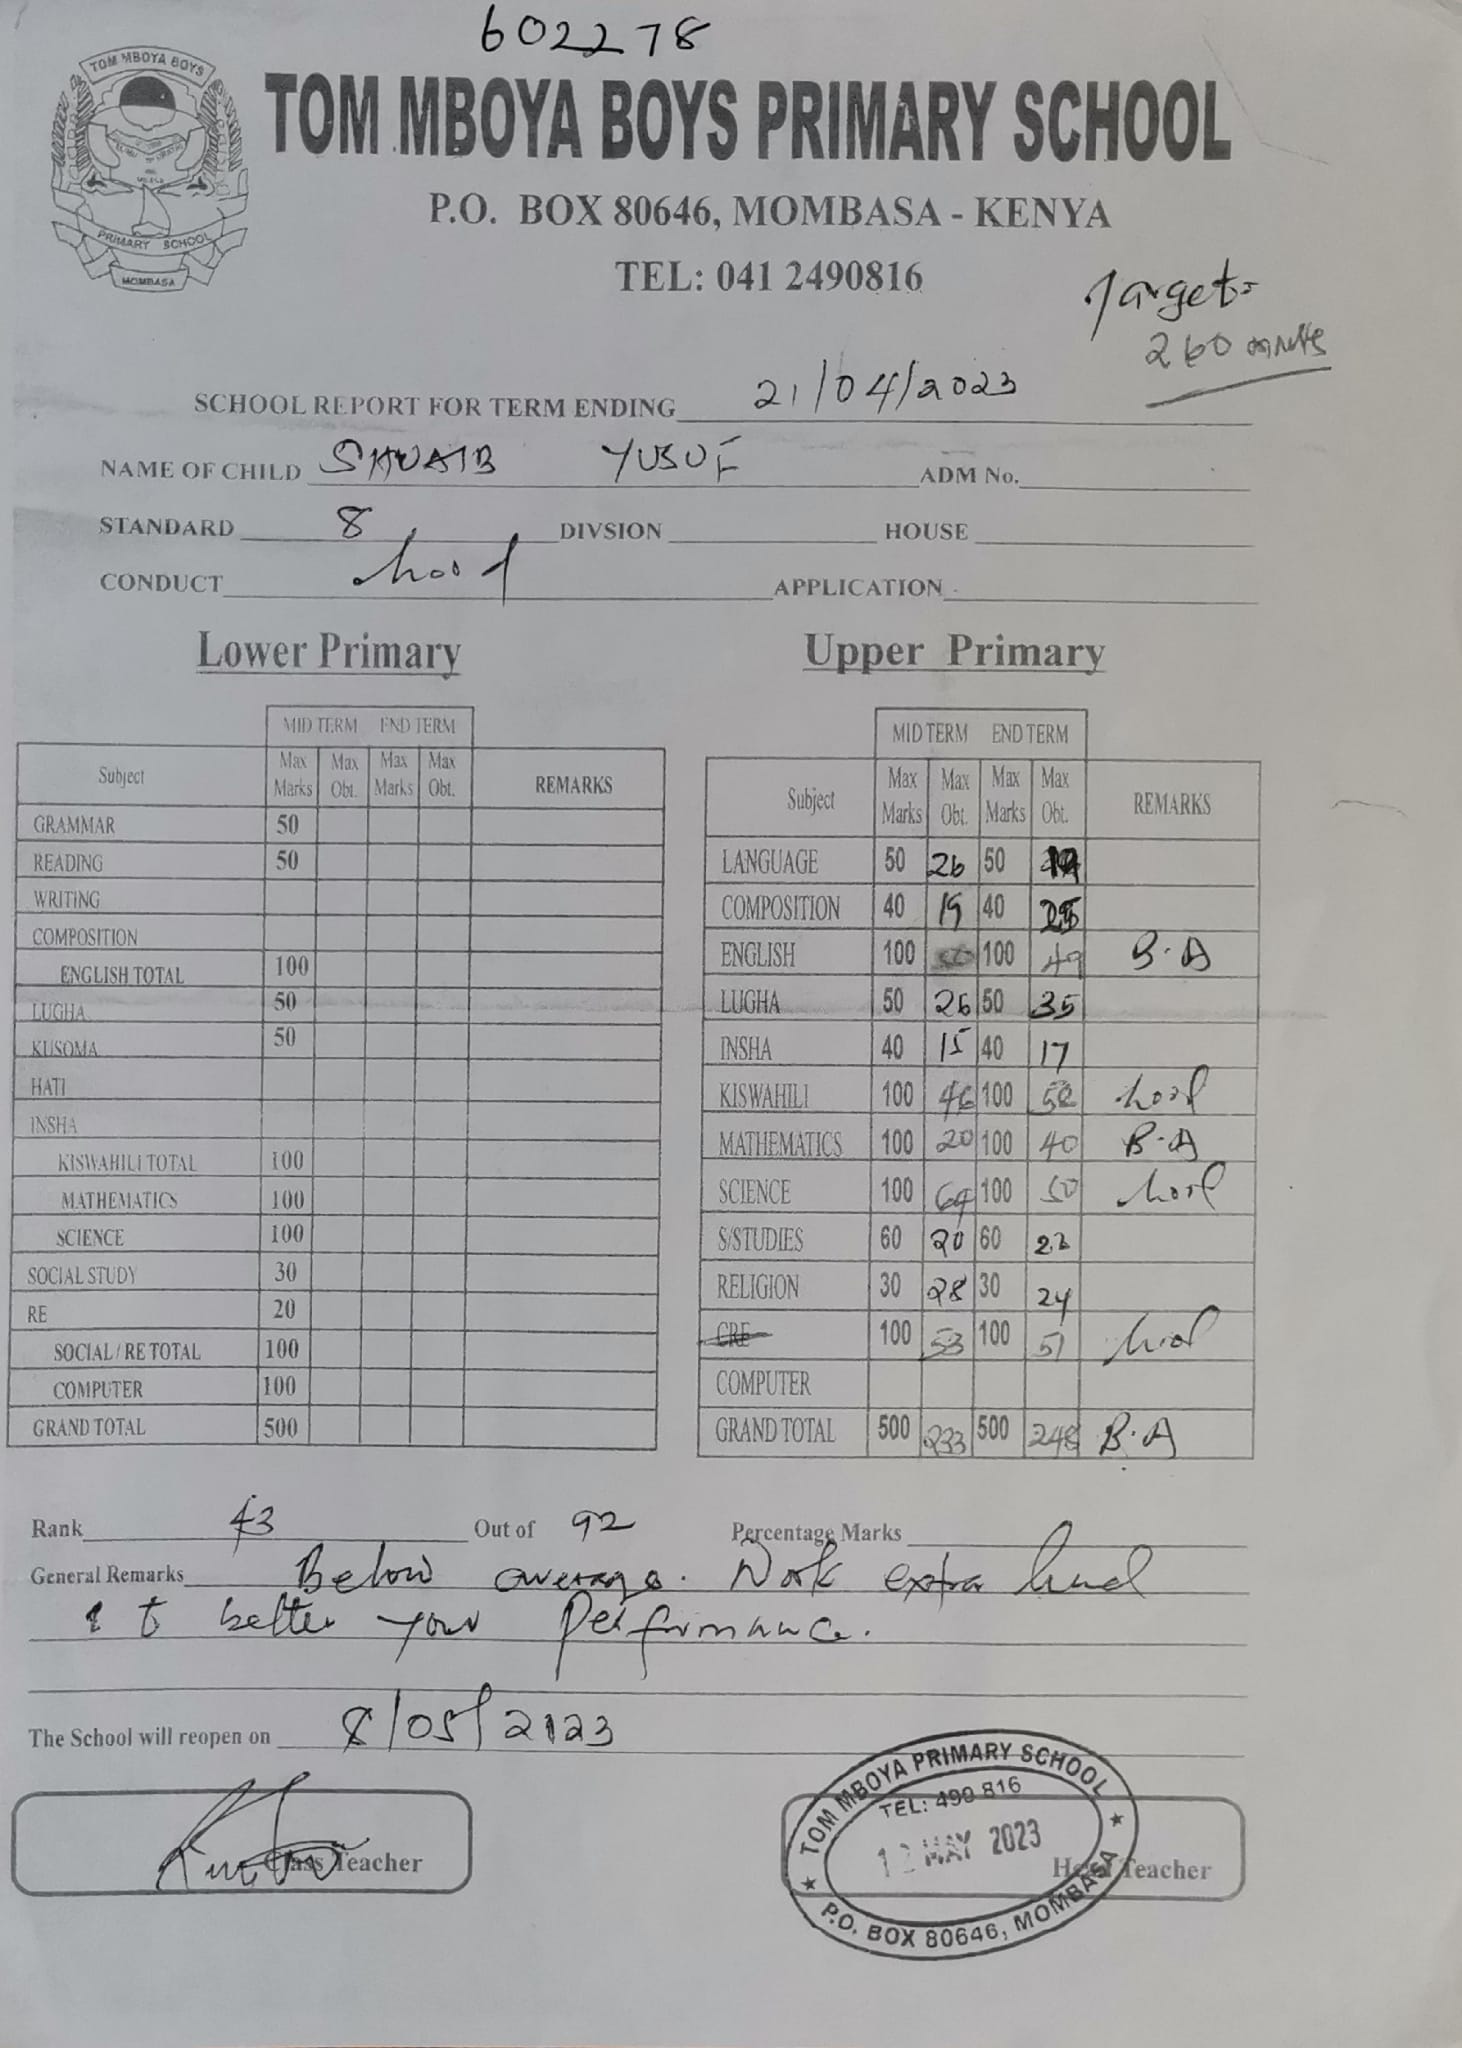 602278
TOM MBOYA BOYS
PRIMARY SCHOOL
MOMBASA
TOM MBOYA BOYS PRIMARY SCHOOL
P.O. BOX 80646, MOMBASA - KENYA
TEL: 041 2490816
Target=
260 marks
SCHOOL REPORT FOR TERM ENDING 21/04/2023
NAME OF CHILD SHUAIB YUSUF ADM No.
STANDARD 8 DIVSION HOUSE
CONDUCT Good APPLICATION
Lower Primary
MID TERM END TERM
Subject Max Marks Max Obt. Max Marks Max Obt. REMARKS
GRAMMAR 50
READING 50
WRITING
COMPOSITION
ENGLISH TOTAL 100
LUGHA 50
KUSOMA 50
HATI
INSHA
KISWAHILI TOTAL 100
MATHEMATICS 100
SCIENCE 100
SOCIAL STUDY 30
RE 20
SOCIAL / RE TOTAL 100
COMPUTER 100
GRAND TOTAL 500
Upper Primary
MID TERM END TERM
Subject Max Marks Max Obt. Max Marks Max Obt. REMARKS
LANGUAGE 50 26 50
COMPOSITION 40 19 40
ENGLISH 100 50 100 49 B.A
LUGHA 50 26 50 35
INSHA 40 15 40 17
KISWAHILI 100 46 100 58 Good
MATHEMATICS 100 20 100 40 B.A
SCIENCE 100 64 100 50 Good
S/STUDIES 60 20 60 22
RELIGION 30 28 30 24
CRE 100 53 100 51 Good
COMPUTER
GRAND TOTAL 500 233 500 248 B.A
Rank 43 Out of 92 Percentage Marks
General Remarks Below average. Work extra hard
to better your performance.
The School will reopen on 8/05/2023
Class Teacher
Head Teacher
TOM MBOYA PRIMARY SCHOOL
TEL: 490 816
12 MAY 2023
P.O. BOX 80646, MOMBASA